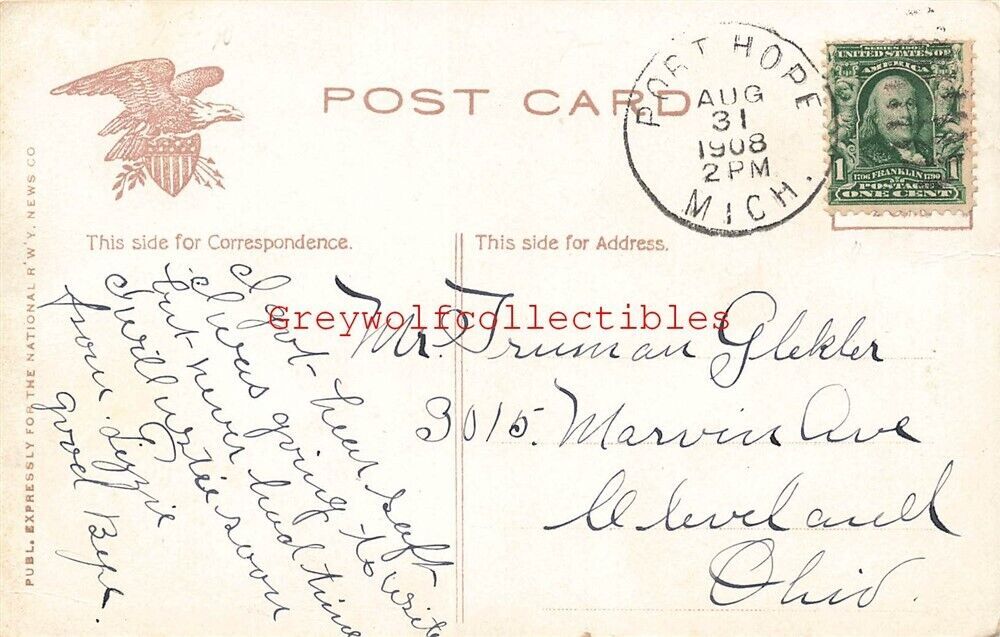 POST CARD
PORT HOPE
AUG
31
1908
2 PM
MICH.
SERIES 1902
UNITED STATES OF
AMERICA
1 1706 FRANKLIN 1790 1
POSTAGE
ONE CENT
This side for Correspondence.
This side for Address.
PUBL. EXPRESSLY FOR THE NATIONAL R'W'Y. NEWS CO
Greywolfcollectibles
I got heer saft
I was going to write
but never had time
I will write soon
from Lizzie
good Bye.
Mr. Truman Glekler
3015. Marvin Ave
Cleveland
Ohio.